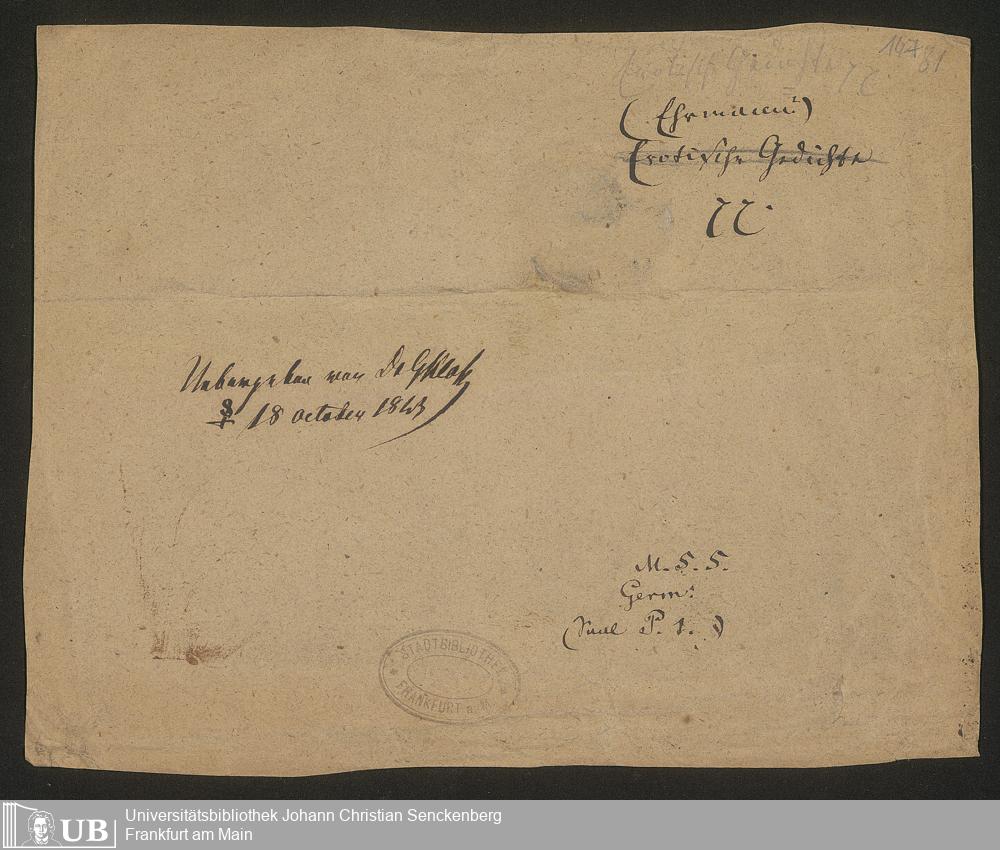 147
81
Erotische Gedichte
(Ehrmann?)
Erotische Gedichte
Uebergeben von Dr GKloß
☿ 18 october 1843
M. S. S.
Germ:
(Saal P. 1. )
STADTBIBLIOTHEK
FRANKFURT a. M.
UB
Universitätsbibliothek Johann Christian Senckenberg
Frankfurt am Main